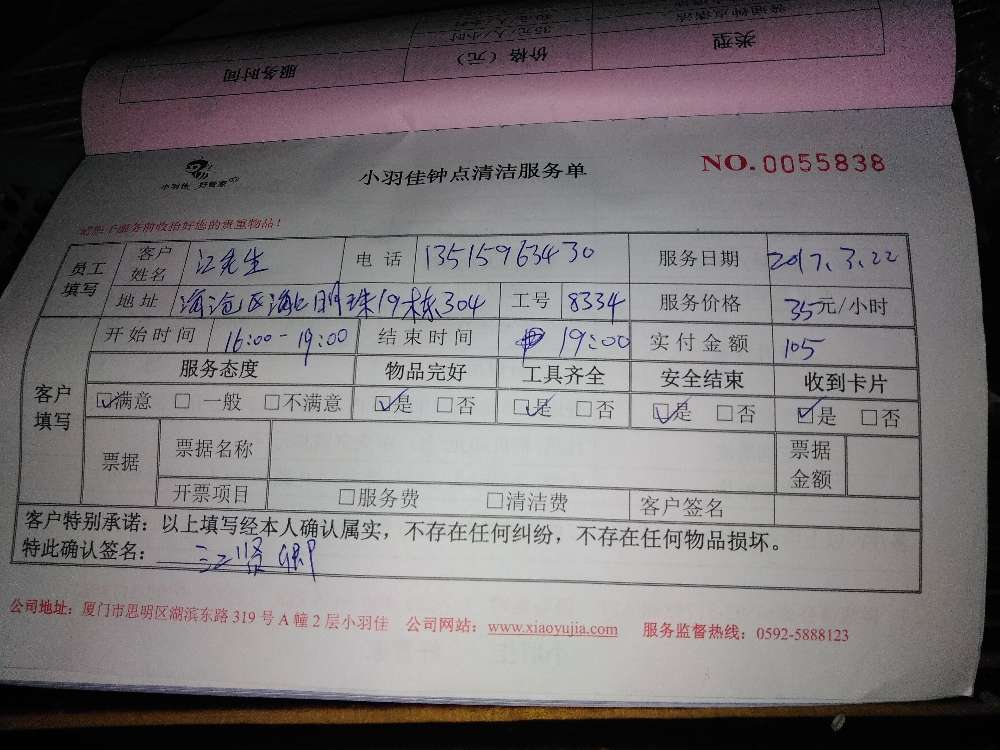 类型 价格（元） 服务时间
35元/人/小时
小羽佳 好管家
小羽佳钟点清洁服务单
NO.0055838
记把于服务前收拾好您的贵重物品！
员工填写 客户姓名 江先生 电话 13515963430 服务日期 2017.3.22
地址 海沧区海北明珠19栋304 工号 8334 服务价格 35元/小时
客户填写 开始时间 16:00-19:00 结束时间 19:00 实付金额 105
服务态度 物品完好 工具齐全 安全结束 收到卡片
☑满意 □一般 □不满意 ☑是 □否 ☑是 □否 ☑是 □否 ☑是 □否
票据 票据名称 票据金额
开票项目 □服务费 □清洁费 客户签名
客户特别承诺：以上填写经本人确认属实，不存在任何纠纷，不存在任何物品损坏。
特此确认签名：江贤
公司地址：厦门市思明区湖滨东路319号A幢2层小羽佳 公司网站：www.xiaoyujia.com 服务监督热线：0592-5888123